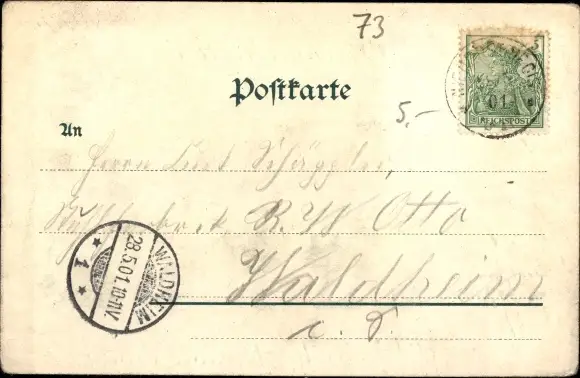 73
5
REICHSPOST
01
Postkarte
5,-
An
Herrn Curt
R. W. Otto
Waldheim
i. S.
WALDHEIM
28.5.01.10-11V.
* 1 *